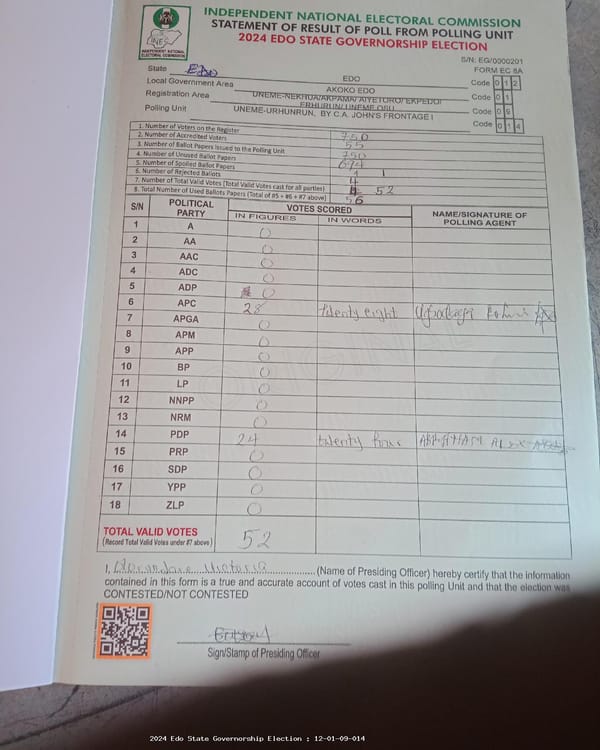 INDEPENDENT NATIONAL ELECTORAL COMMISSION
STATEMENT OF RESULT OF POLL FROM POLLING UNIT
2024 EDO STATE GOVERNORSHIP ELECTION
INEC
INDEPENDENT NATIONAL ELECTORAL COMMISSION
S/N: EG/0000201
FORM EC 8A
State Edo EDO Code 012
Local Government Area AKOKO EDO Code 01
Registration Area UNEME-NEKHUA/AKPAMA/ AIYETORO/ EKPEDO/ ERHURUN/ UNEME OSU Code 09
Polling Unit UNEME-URHUNRUN, BY C.A. JOHN'S FRONTAGE I Code 014
1. Number of Voters on the Register 750
2. Number of Accredited Voters 55
3. Number of Ballot Papers Issued to the Polling Unit 750
4. Number of Unused Ballot Papers 694
5. Number of Spoiled Ballot Papers 1
6. Number of Rejected Ballots 4
7. Number of Total Valid Votes (Total Valid Votes cast for all parties) 52
8. Total Number of Used Ballots Papers (Total of #5 + #6 + #7 above) 56
S/N POLITICAL PARTY VOTES SCORED NAME/SIGNATURE OF POLLING AGENT
IN FIGURES IN WORDS
1 A 0
2 AA 0
3 AAC 0
4 ADC 0
5 ADP 0
6 APC 28 twenty eight
7 APGA 0
8 APM 0
9 APP 0
10 BP 0
11 LP 0
12 NNPP 0
13 NRM 0
14 PDP 24 twenty four
15 PRP 0
16 SDP 0
17 YPP 0
18 ZLP 0
TOTAL VALID VOTES 52
(Record Total Valid Votes under #7 above)
I, Victoria (Name of Presiding Officer) hereby certify that the information
contained in this form is a true and accurate account of votes cast in this polling Unit and that the election was
CONTESTED/NOT CONTESTED
Sign/Stamp of Presiding Officer
2024 Edo State Governorship Election : 12-01-09-014